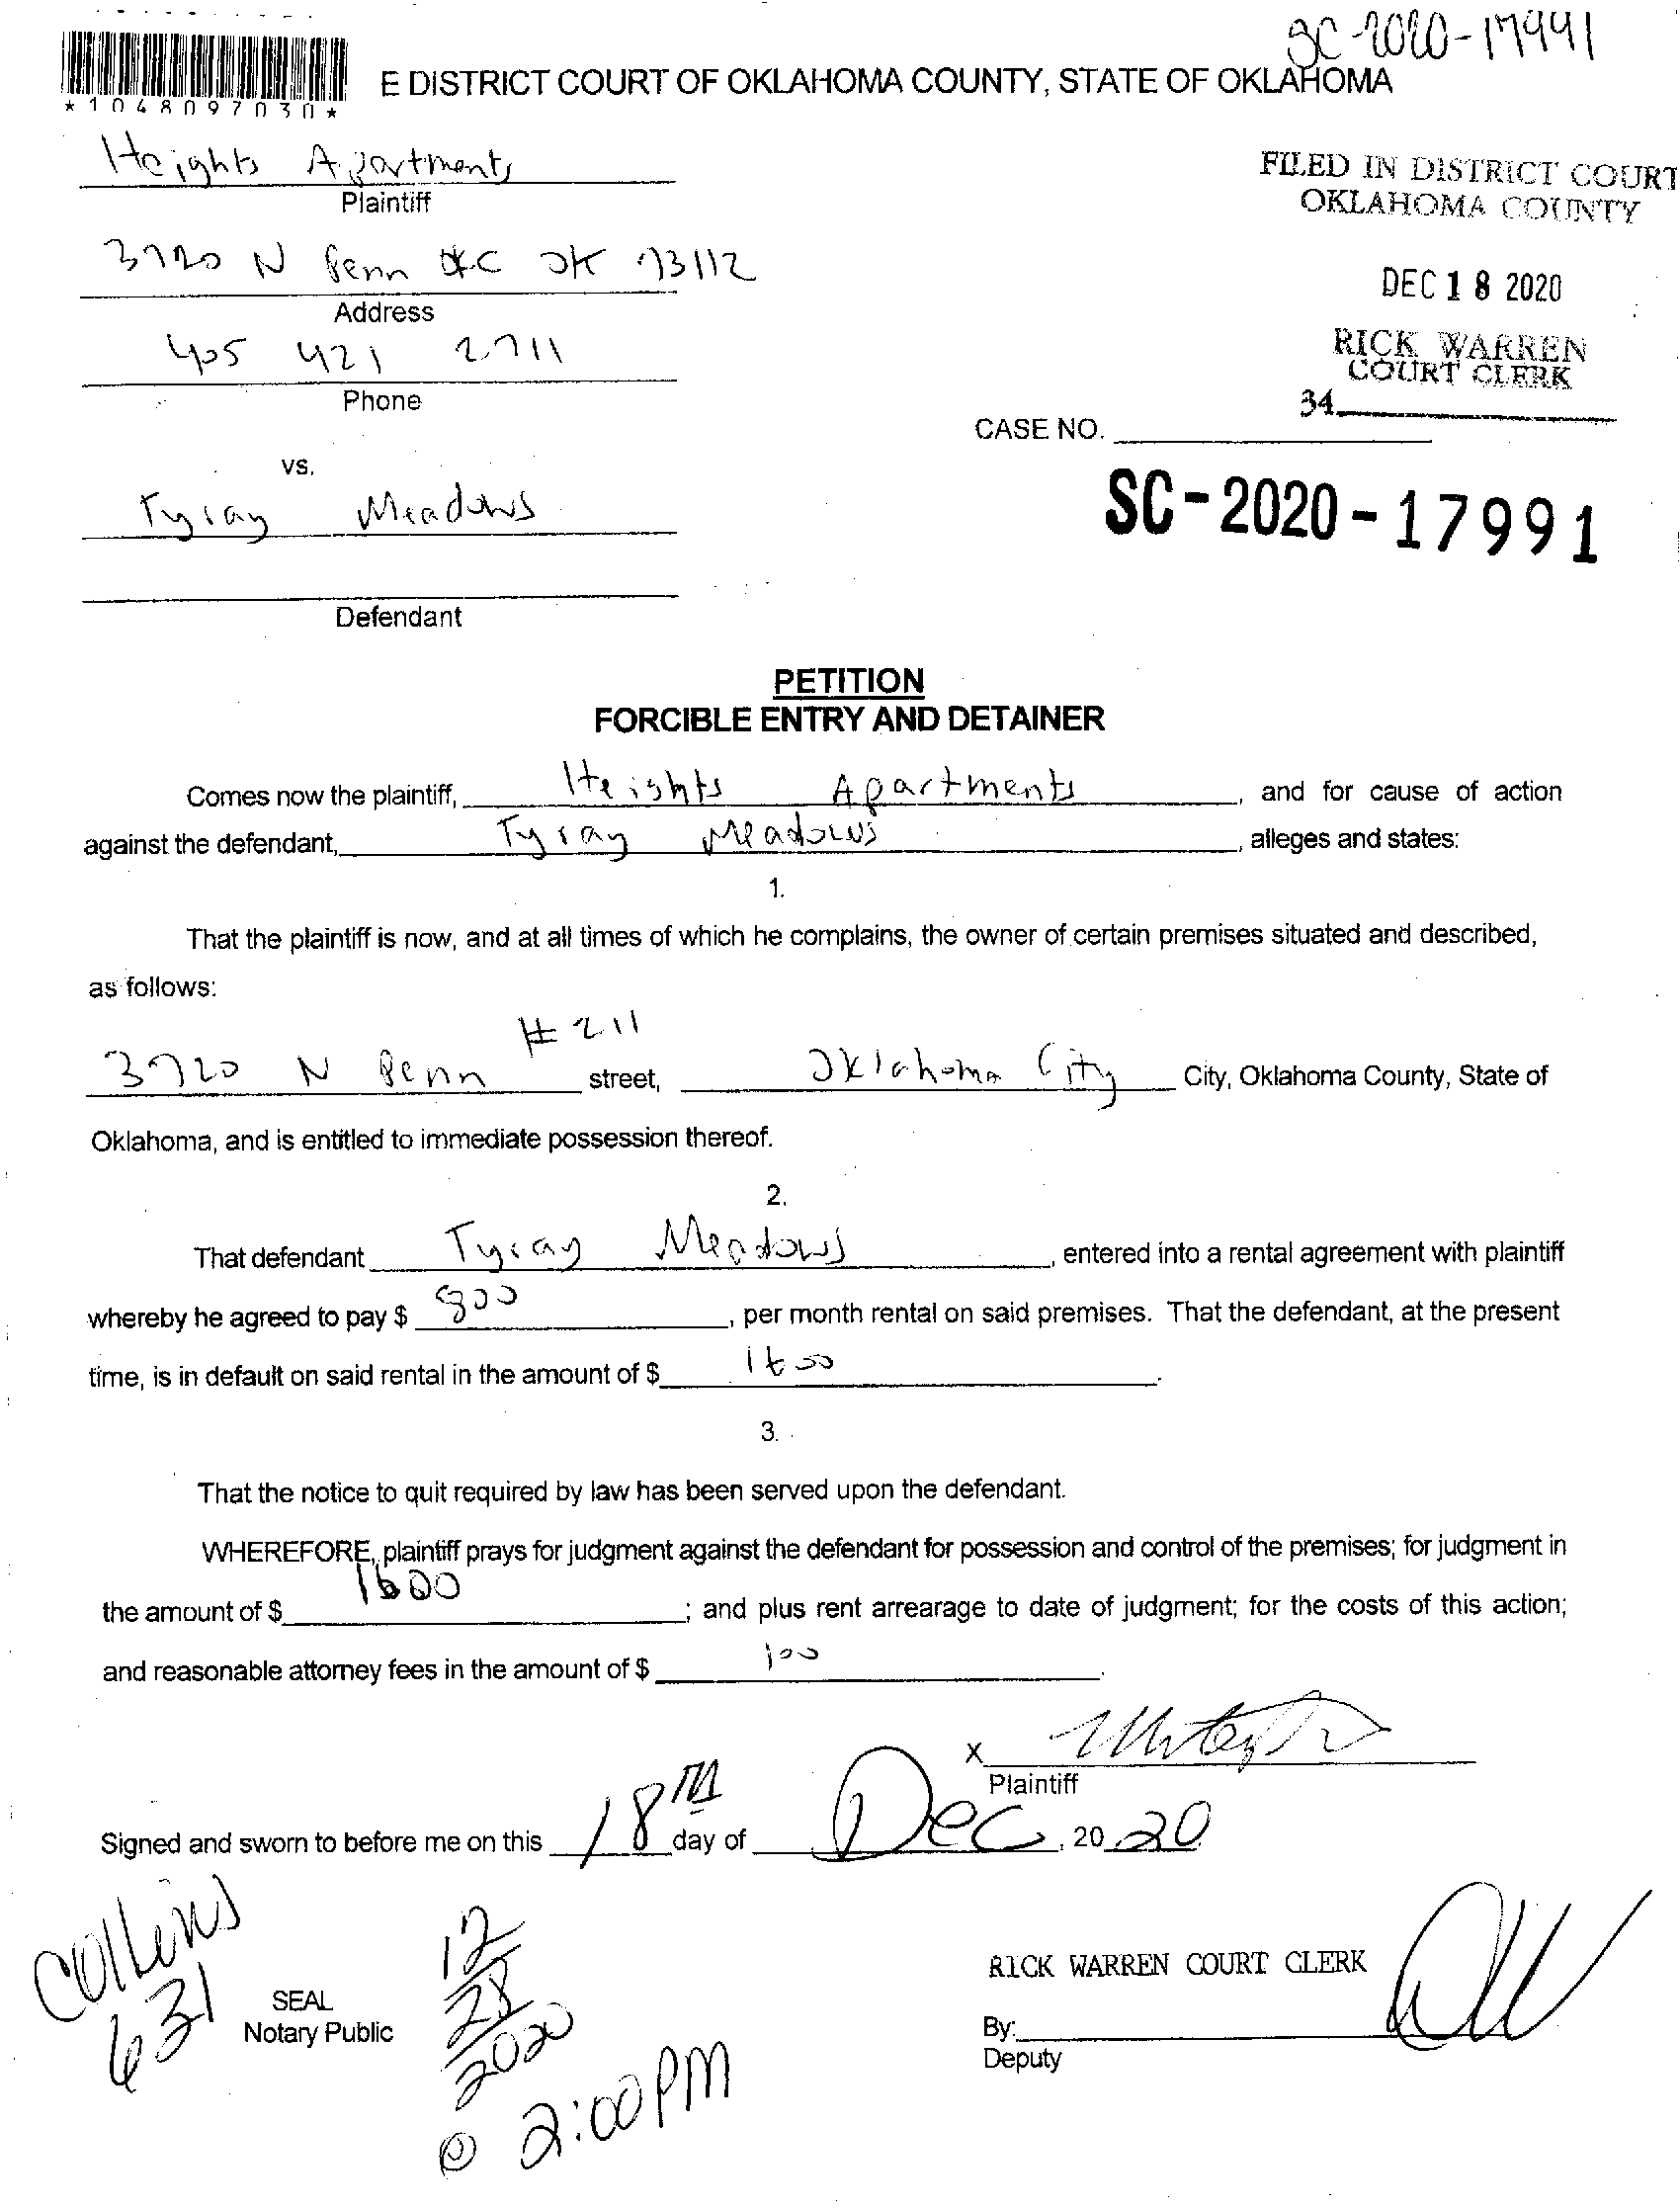 SC-2020-17991
*1048097030*
E DISTRICT COURT OF OKLAHOMA COUNTY, STATE OF OKLAHOMA
Heights Apartments
Plaintiff
FILED IN DISTRICT COURT
OKLAHOMA COUNTY
3720 N Penn OKC OK 73112
Address
DEC 18 2020
405 421 2711
Phone
RICK WARREN
COURT CLERK
34
CASE NO.
vs.
Tyray Meadows
SC-2020-17991
Defendant
PETITION
FORCIBLE ENTRY AND DETAINER
Comes now the plaintiff, Heights Apartments, and for cause of action
against the defendant, Tyray Meadows, alleges and states:
1.
That the plaintiff is now, and at all times of which he complains, the owner of certain premises situated and described,
as follows:
# 211
3720 N Penn street, Oklahoma City City, Oklahoma County, State of
Oklahoma, and is entitled to immediate possession thereof.
2.
That defendant Tyray Meadows, entered into a rental agreement with plaintiff
whereby he agreed to pay $ 800, per month rental on said premises. That the defendant, at the present
time, is in default on said rental in the amount of $ 1600.
3.
That the notice to quit required by law has been served upon the defendant.
WHEREFORE, plaintiff prays for judgment against the defendant for possession and control of the premises; for judgment in
the amount of $ 1600; and plus rent arrearage to date of judgment; for the costs of this action;
and reasonable attorney fees in the amount of $ 100.
X
Plaintiff
Signed and sworn to before me on this 18TH day of Dec, 20 20
Collins
631
SEAL
Notary Public
12
28
2020
@ 2:00PM
RICK WARREN COURT CLERK
By:
Deputy